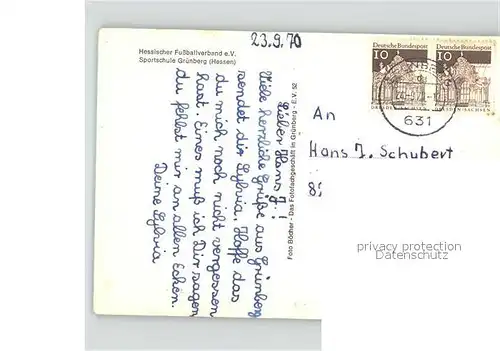 Hessischer Fußballverband e.V.
Sportschule Grünberg (Hessen)
23.9.70
Lieber Hans J.!
Viele herzliche Grüße aus Grünberg
sendet dir Sylvia. Hoffe das
du mich noch nicht vergessen
hast. Eines muß ich Dir sagen,
du fehlst mir an allen Echen.
Deine Sylvia
Foto Böcher - Das Fotofachgeschäft in Grünberg - E.V. 52
Deutsche Bundespost
10
Deutsche Bundespost
10
631
An
Hans J. Schubert
privacy protection
Datenschutz